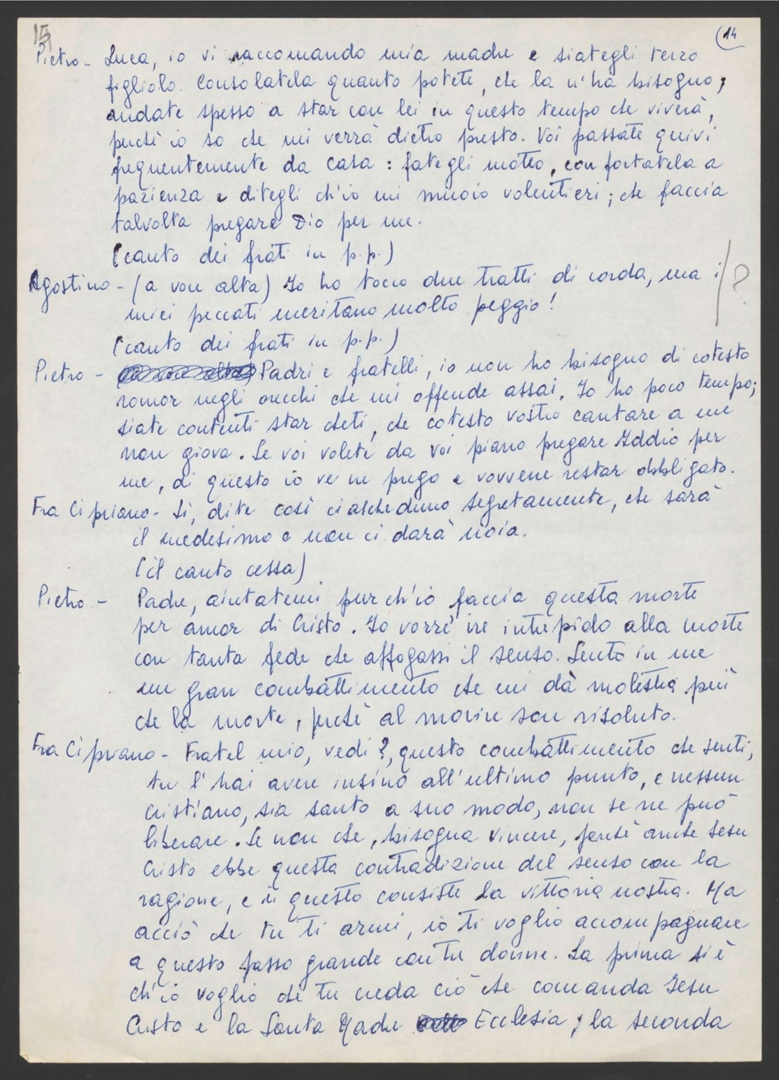 15
14
Pietro - Luca, io vi raccomando mia madre e siategli terzo
figliolo. Consolatela quanto potete, che la n'ha bisogno;
andate spesso a star con lei in questo tempo che viverà,
perché io so che mi verrà dietro presto. Voi passate quivi
frequentemente da casa: fategli motto, confortatela a
pazienza e ditegli ch'io mi muoio volentieri; che faccia
talvolta pregare Dio per me.
(canto dei frati in p.p.)
Agostino - (a voce alta) Io ho tocco due tratti di corda, ma i
miei peccati meritano molto peggio!
?
(canto dei frati in p.p.)
Pietro - Padri e fratelli, io non ho bisogno di cotesto
romor negli orecchi che mi offende assai. Io ho poco tempo;
siate contenti star cheti, che cotesto vostro cantare a me
non giova. Se voi volete da voi piano pregare Iddio per
me, di questo io ve ne prego e vovvene restar obbligato.
Fra Cipriano - Sì, dite così ciascheduno segretamente, che sarà
il medesimo e non ci darà noia.
(il canto cessa)
Pietro - Padre, aiutatemi purch'io faccia questa morte
per amor di Cristo. Io vorre' ire intrepido alla morte
con tanta fede che affogassi il senso. Sento in me
un gran combattimento che mi dà molestia più
che la morte, perché al morire son risoluto.
Fra Cipriano - Fratel mio, vedi?, questo combattimento che senti,
tu l'hai avere insino all'ultimo punto, e nessun
cristiano, sia santo a suo modo, non se ne può
liberare. Se non che, bisogna vincere, perché anche Gesu
Cristo ebbe questa contradizione del senso con la
ragione, e in questo consiste la vittoria nostra. Ma
acciò che tu ti armi, io ti voglio accompagnare
a questo passo grande con tre donne. La prima si è
ch'io voglio che tu creda ciò che comanda Gesu
Cristo e la Santa Madre Ecclesia; la seconda